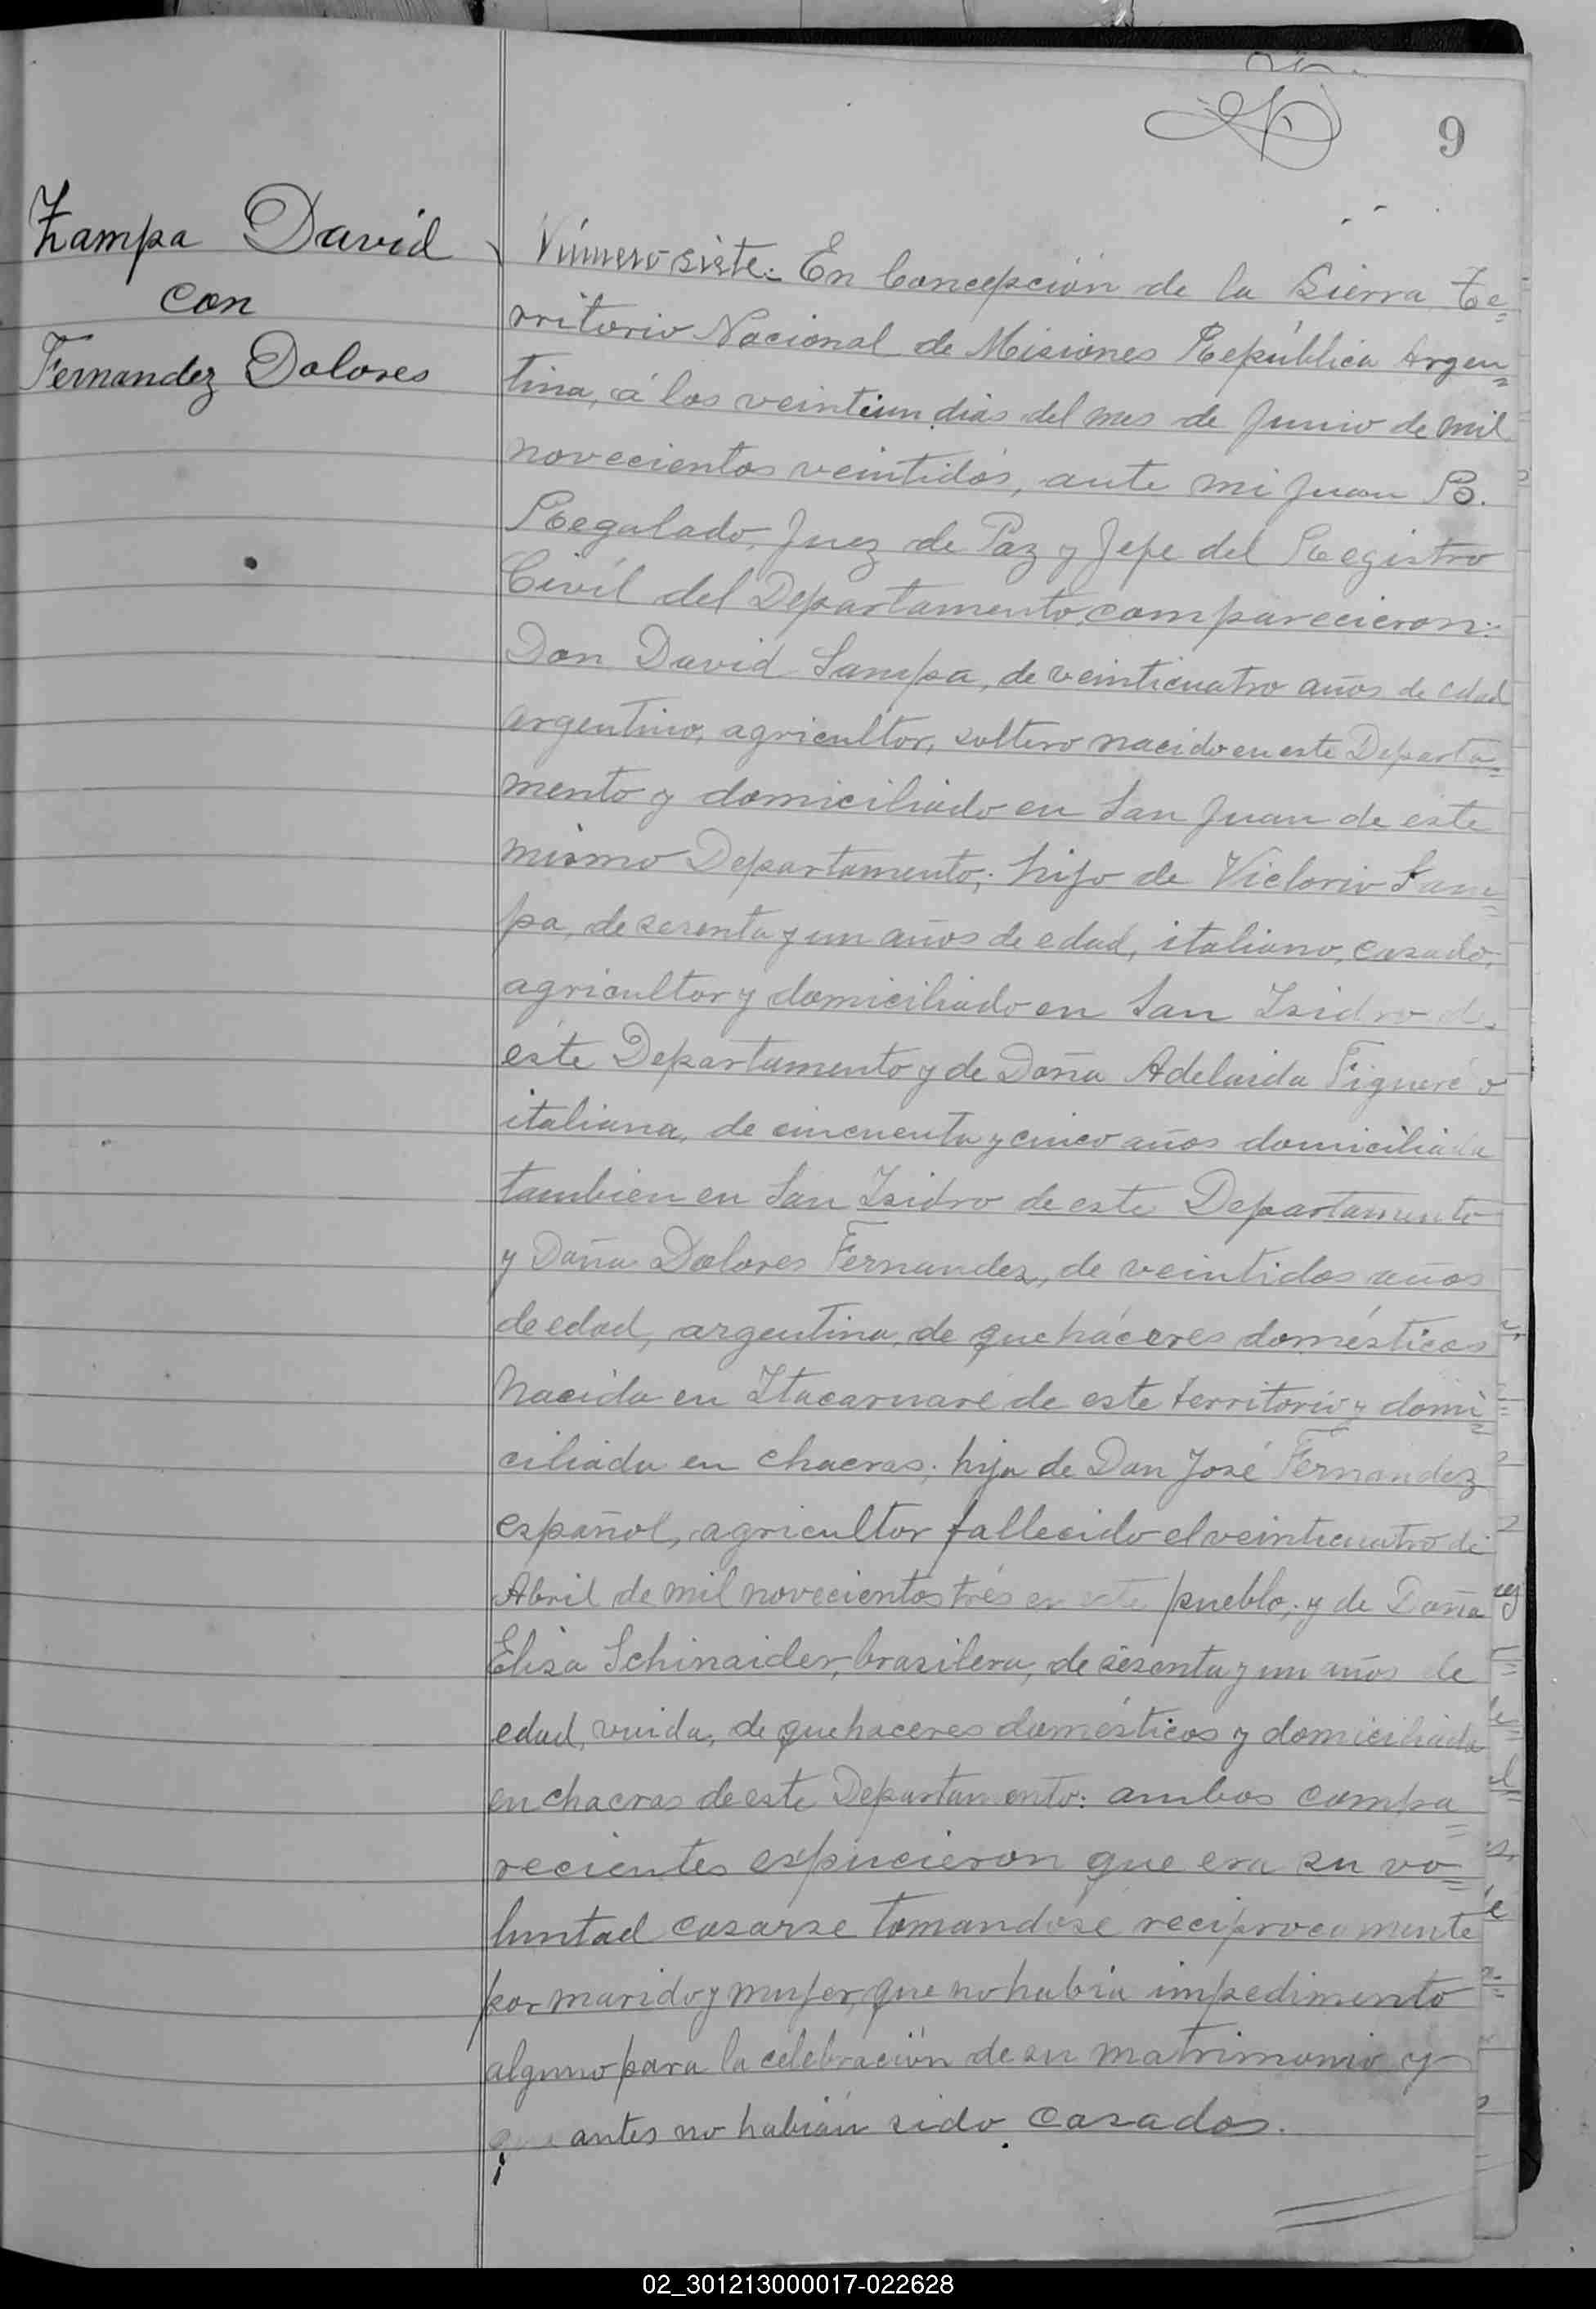 9
Zampa David
con
Fernandez Dolores
Número siete. En Concepción de la Sierra Te=
rritorio Nacional de Misiones República Argen=
tina, á los veintiun dias del mes de Junio de mil
novecientos veintidós, ante mi Juan B.
Regalado, Juez de Paz y Jefe del Registro
Civil del Departamento, comparecieron:
Don David Sampa, de veinticuatro años de edad
argentino, agricultor, soltero nacido en este Departa=
mento y domiciliado en San Juan de este
mismo Departamento; hijo de Victorio Sam=
pa, de sesenta y un años de edad, italiano, casado,
agricultor y domiciliado en San Isidro de
este Departamento y de Doña Adelaida
italiana, de cincuenta y cinco años domiciliada
tambien en San Isidro de este Departamento
y Doña Dolores Fernandez, de veintidos años
de edad, argentina, de quehaceres domésticos
nacida en Itacaruaré de este territorio y domi=
ciliada en chacras; hija de Don José Fernandez
español, agricultor fallecido el veinticuatro de
Abril de mil novecientos trés en este pueblo; y de Doña
Elisa Schinaider, brasilera, de sesenta y un años de
edad, viuda, de quehaceres domésticos y domiciliada
en chacras de este Departamento: ambos compa=
recientes espucieron que era su vo=
luntad casarse tomandose reciprocamente
por marido y mujer, que no habia impedimento
alguno para la celebración de su matrimonio y
que antes no habian sido casados.
02_301213000017-022628